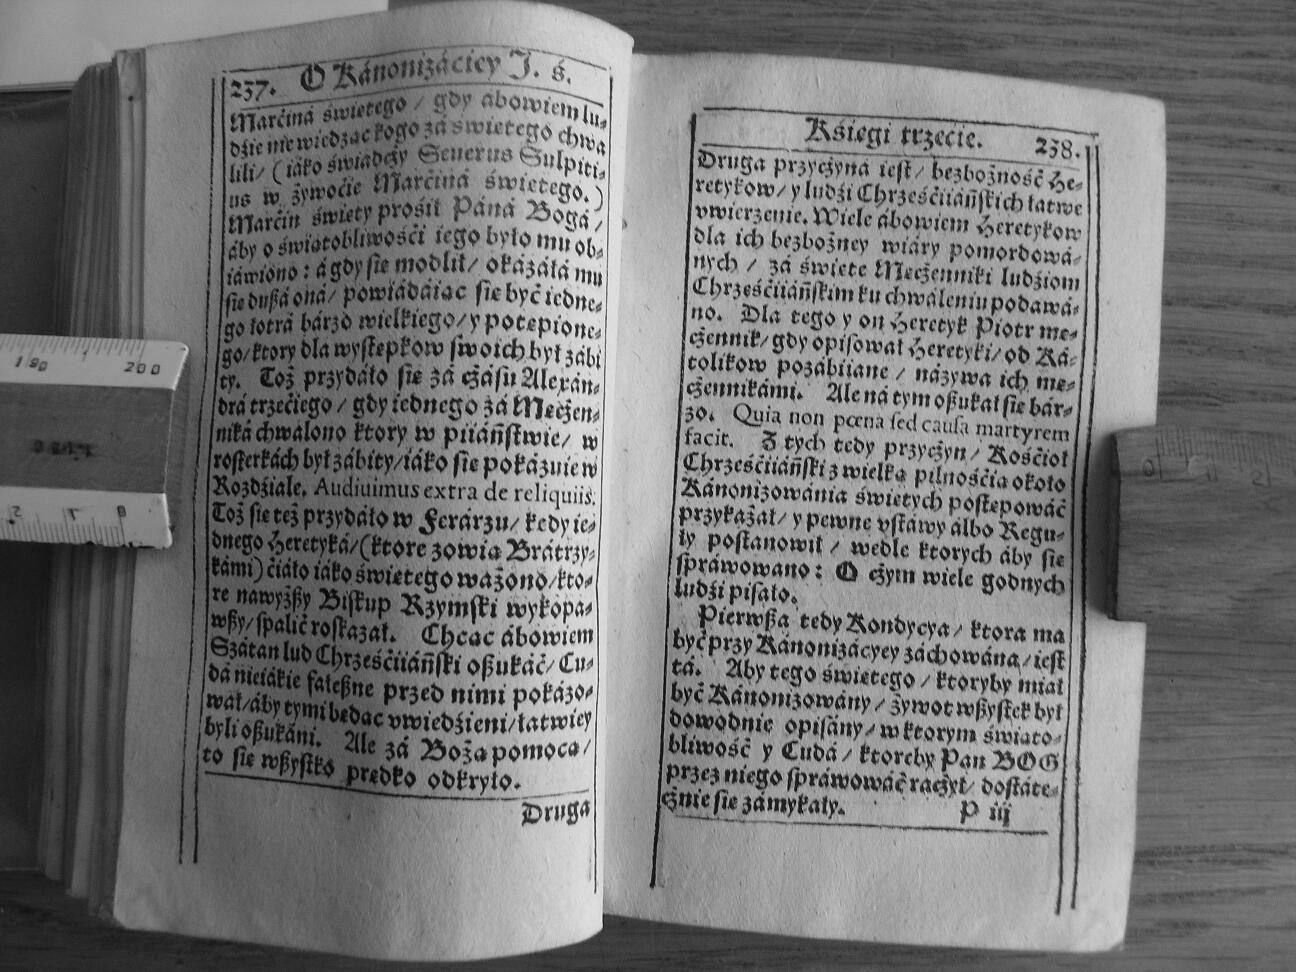 237. O Kánonizáciey J. ś.
Marćiná świetego / gdy ábowiem lu-
dźie nie wiedząc kogo zá swietego chwa
lili / (iáko świadcży Seuerus Sulpiti-
us w żywoćie Marćiná świetego.)
Marćin świety prośił Páná Bogá /
áby o świątobliwośći iego było mu ob-
iáwiono : á gdy sie modlił / okázáłá mu
sie dußá oná / powiádáiąc sie być iedne-
go łotrá bárzo wielkiego / y potępione-
go / ktory dla występkow swoich był zábi
ty. Toż przydáło sie zá cżásu Alexán-
drá trzećiego / gdy iednego zá Mecżen-
niká chwalono ktory w piiáńſtwie / w
rosterkách był zábity / iáko sie pokázuie w
Rozdźiale. Audiuimus extra de reliquiis.
Toż sie też przydáło w Ferárzu / kedy ie-
dnego Heretyká / (ktore zowią Brátrzy-
kámi) ćiáło iáko świetego ważono / kto-
re nawyżßy Biskup Rzymski wykopa-
wßy / spalić roskazał. Chcąc ábowiem
Szátan lud Chrześćiiáńſki oßukáć / Cu-
dá nieiákie fałeßne przed nimi pokázo-
wał / áby tymi bedąc vwiedźieni / łatwiey
byli oßukáni. Ale zá Bożą pomocą /
to sie wßyſtko prędko odkryło.
Druga
Kśiegi trzećie. 238.
Druga przycżyná ieſt / bezbożność He-
retykow / y ludźi Chrześćiiáńſkich łatwe
vwierzenie. Wiele ábowiem Heretykow
dla ich bezbożney wiáry pomordowá-
nych / zá świete Mecżenniki ludźiom
Chrześćiiáńſkim ku chwaleniu podawá-
no. Dla tego y on Heretyk Piotr me-
cżennik / gdy opisował Heretyki / od Ká-
tolikow pozábiiane / názywa ich me-
cżennikámi. Ale ná tym oßukał sie bár-
zo. Quia non pœna sed causa martyrem
facit. Z tych tedy przycżyn / Kośćioł
Chrześćiiáńſki z wielką pilnośćią około
Kánonizowánia świetych postepowáć
przykazał / y pewne vſtáwy álbo Regu-
ły poſtanowił / wedle ktorych áby sie
spráwowano : O cżym wiele godnych
ludźi pisáło.
Pierwßa tedy Kondycya / ktora ma
być przy Kánonizácyey záchowána / ieſt
tá. Aby tego świetego / ktoryby miał
być Kánonizowány / żywot wßyſtek był
dowodnie opisány / w ktorym świąto-
bliwość y Cudá / ktoreby Pan BOG
przez niego spráwowáć racżył / dostáte-
cżnie sie zámykáły. P iij
190 200
2 1 0
0 1 2